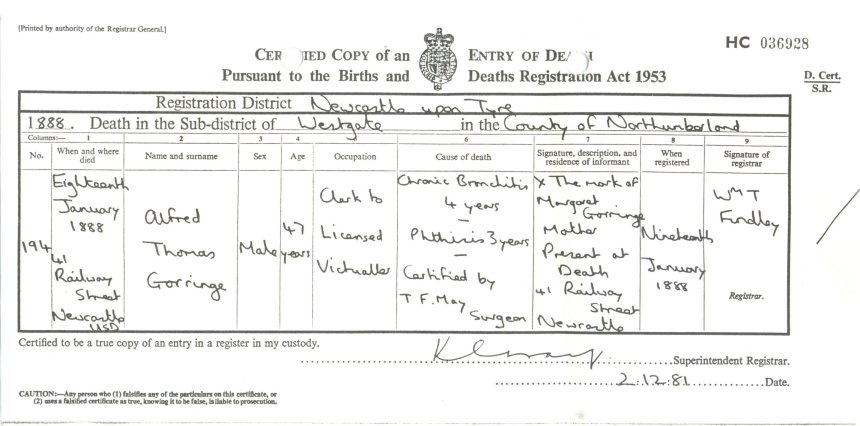 [Printed by authority of the Registrar General.]
HC 036928
CER IED COPY of an ENTRY OF DEA H
Pursuant to the Births and Deaths Registration Act 1953
D. Cert.
S.R.
Registration District Newcastle upon Tyne
1888. Death in the Sub-district of Westgate in the County of Northumberland
Columns:— 1 2 3 4 5 6 7 8 9
No. When and where died Name and surname Sex Age Occupation Cause of death Signature, description, and residence of informant When registered Signature of registrar
194
Eighteenth
January
1888
41
Railway
Street
Newcastle
USD
Alfred
Thomas
Gorringe
Male
47
years
Clerk to
Licensed
Victualler
Chronic Bronchitis
4 years
—
Phthisis 3 years
—
Certified by
T F. May
Surgeon
X The mark of
Margaret
Gorringe
Mother
Present at
Death
41 Railway
Street
Newcastle
Nineteenth
January
1888
Wm T
Findley
Registrar.
Certified to be a true copy of an entry in a register in my custody.
Superintendent Registrar.
2.12.81 Date.
CAUTION:—Any person who (1) falsifies any of the particulars on this certificate, or
(2) uses a falsified certificate as true, knowing it to be false, is liable to prosecution.